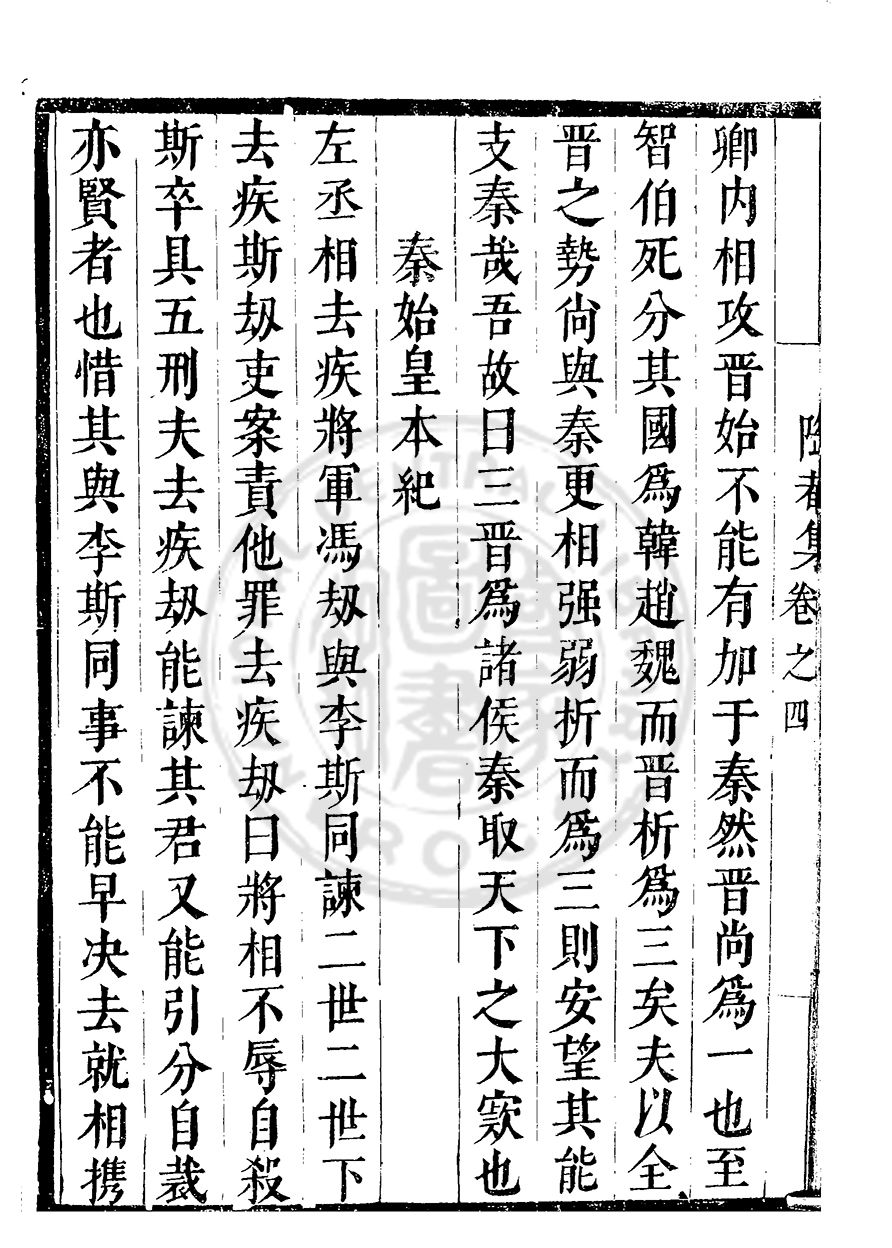 陶菴集卷之四
卿内相攻晋始不能有加于秦然晋尚爲一也至
智伯死分其國爲韓趙魏而晋析爲三矣夫以全
晋之勢尚與秦更相强弱折而爲三則安望其能
支秦哉吾故曰三晋爲諸侯秦取天下之大窾也
秦始皇本紀
左丞相去疾將軍馮劫與李斯同諫二世二世下
去疾斯劫吏案責他罪去疾劫曰將相不辱自殺
斯卒具五刑夫去疾劫能諫其君又能引分自裁
亦賢者也惜其與李斯同事不能早决去就相携